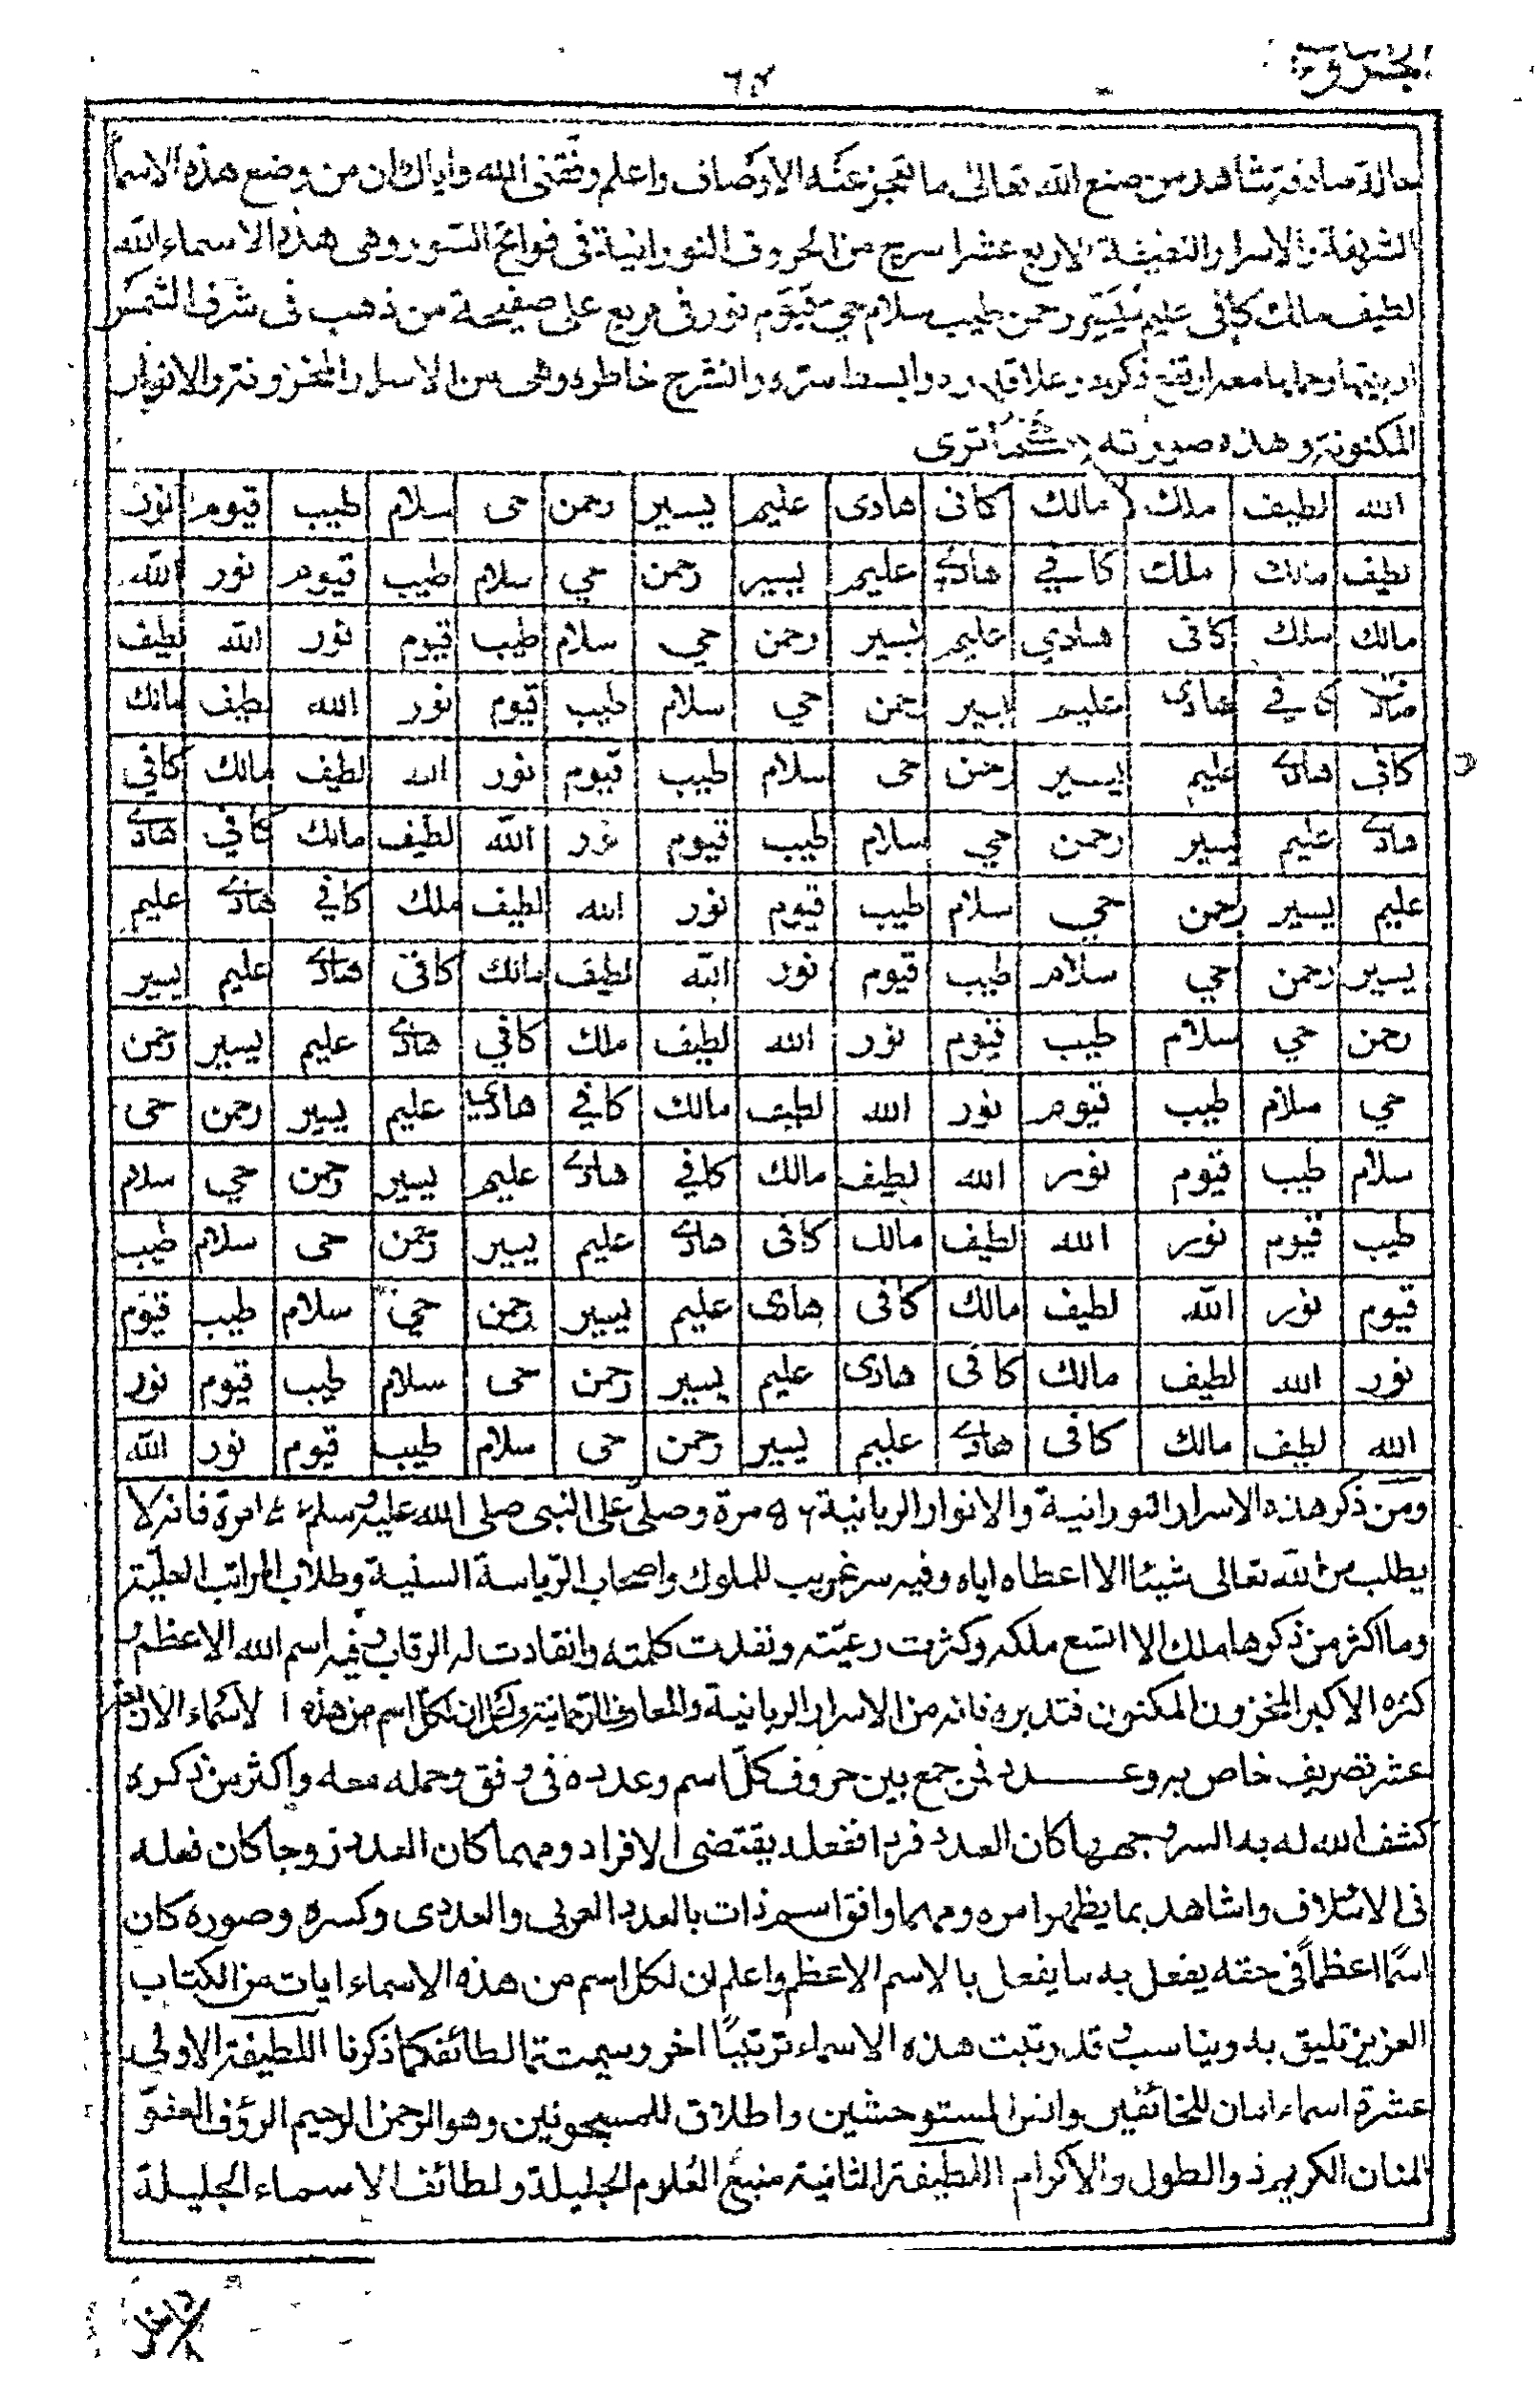 ٦٤
صادفة يشاهد من صنع الله تعالى ما تعجز عنه الاوصاف واعلم وفقنى الله واياك ان من وضع هذه الاسما
الاربع عشر من الحروف النورانية فى فواتح السور وهى هذه الاسماء الله
لطيف مالك كافى عليم يسير رحمن طيب سلام حى قيوم نور فى مربع على صفيحة من ذهب فى شرف الشمس
ذكره وعلا قدره وانبسط سره وانشرح خاطره وهى من الاسرار المخزونة والانوار
المكنونة وهذه صورته كما ترى
الله لطيف ملك مالك كافى هادى عليم يسير رحمن حى سلام طيب قيوم نور
لطيف مالك ملك كافي هادي عليم يسير رحمن حي سلام طيب قيوم نور الله
مالك ملك كافى هادي عليم يسير رحمن حي سلام طيب قيوم نور الله لطيف
كافي هادى عليم يسير رحمن حي سلام طيب قيوم نور الله لطيف مالك
كافى هادي عليم يسير رحمن حى سلام طيب قيوم نور الله لطيف مالك كافي
هادي عليم يسير رحمن حي سلام طيب قيوم نور الله لطيف مالك كافي هادي
عليم يسير رحمن حي سلام طيب قيوم نور الله لطيف ملك كافي هادي عليم
يسير رحمن حي سلام طيب قيوم نور الله لطيف مالك كافى هادي عليم يسير
رحمن حي سلام طيب قيوم نور الله لطيف ملك كافي هادي عليم يسير رحمن
حي سلام طيب قيوم نور الله لطيف مالك كافي هادي عليم يسير رحمن حى
سلام طيب قيوم نور الله لطيف مالك كافي هادي عليم يسير رحمن حي سلام
طيب قيوم نور الله لطيف مالك كافى هادي عليم يسير رحمن حى سلام طيب
قيوم نور الله لطيف مالك كافى هادى عليم يسير رحمن حي سلام طيب قيوم
نور الله لطيف مالك كافى هادى عليم يسير رحمن حى سلام طيب قيوم نور
الله لطيف مالك كافى هادي عليم يسير رحمن حى سلام طيب قيوم نور الله
ومن ذكر هذه الاسرار النورانية والانوار الربانية مرة وصلى على النبى صلى الله عليه وسلم مرة فانه لا
يطلب من الله تعالى شيئا الا اعطاه اياه وفيه سر غريب للملوك واصحاب الرياسة السنية وطلاب المراتب العلية
وما اكثر من ذكرها ملك الا اتسع ملكه وكثرت رعيته ونفذت كلمته وانقادت له الرقاب وفيه اسم الله الاعظم و
كنزه الاكبر المخزون المكنون فتدبره فانه من الاسرار الربانية والمعارف الرحمانية لكل اسم من هذه الاسماء الاربعة
عشر تصريف خاص به وعدد فمن جمع بين حروف كل اسم وعدده فى وفق وحمله معه واكثر من ذكره
كشف الله له به السر ومهما كان العدد فردا ففعله يقتضى الافراد ومهما كان العدد زوجا كان فعله
فى الائتلاف واشاهد بما يظهر امره ومهما وافق اسم ذات بالعدد العربى والعددى وكسره وصوره كان
اسما اعظما فى حقه يفعل به ما يفعل بالاسم الاعظم واعلم ان لكل اسم من هذه الاسماء ايات من الكتاب
العزيز تليق به ويناسب وقد رتبت هذه الاسماء ترتيبًا اخر وسميتها لطائف كما ذكرنا اللطيفة الاولى
عشرة اسماء امان للخائفين وانس المستوحشين واطلاق للمسجونين وهو الرحمن الرحيم الرؤف العفو
المنان الكريم ذو الطول والاكرام اللطيفة الثانية منبع العلوم الجليلة ولطائف الاسماء الجليلة